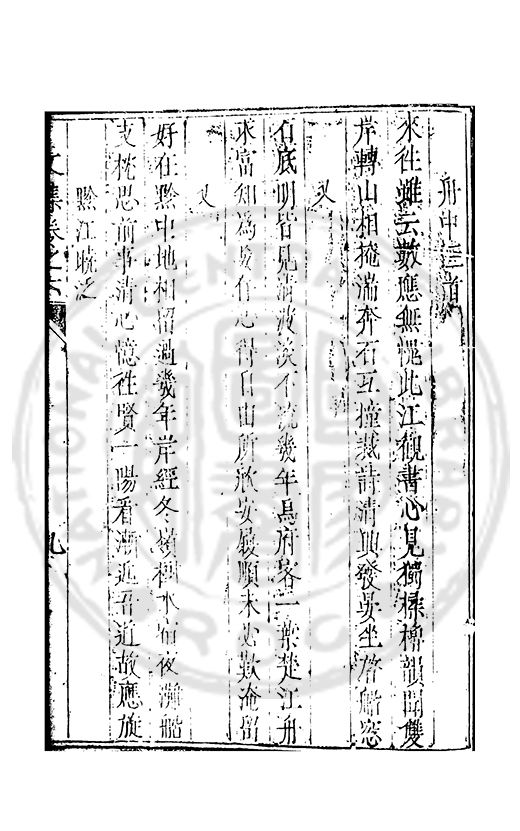 舟中三首
來往雖云數應無愧此江觀書心見獨操檝韻聞雙
岸轉山相掩湍奔石互撞裁詩清興發晏坐啓船窓
又
石底明皆見清波淡不流幾年烏府客一葉楚江舟
求富知為妄存心得自由所欣安履順未必歎淹留
又
好在黔中地相留過幾年岸經冬水宿夜灘
支枕思前事清心憶往賢一陽看漸近吾道故應旋
黔江曉泛
文集卷之六
九